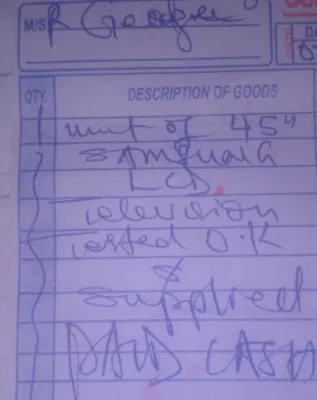 M/S R George
QTY. DESCRIPTION OF GOODS
1 unit of 45"
SAMSUNG
LCD
Television
Tested O.K
&
Supplied
PAID CASH